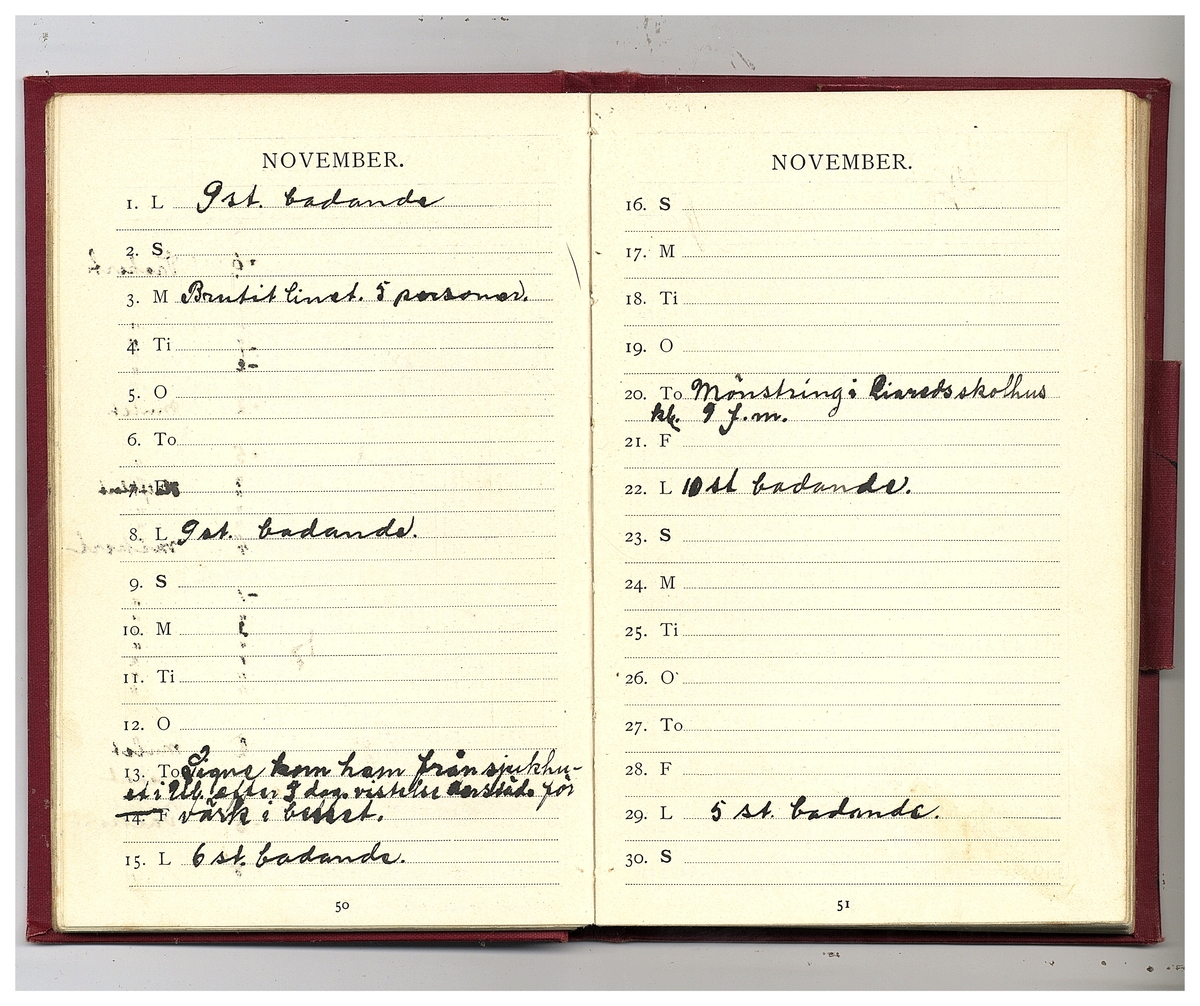 NOVEMBER.
1. L 9 st. badande
2. S
3. M Brutit linet. 5 personer.
4. Ti
5. O
6. To
7. F
8. L 9 st. badande.
9. S
10. M
11. Ti
12. O
13. To Signe kom hem från sjukhu-
et i Ul. efter 9 dag. vistelse därstäd. för
14. F värk i benet.
15. L 6 st. badande.
50
NOVEMBER.
16. S
17. M
18. Ti
19. O
20. To Mönstring i Liareds skolhus
kl. 9 f.m.
21. F
22. L 10 st badande.
23. S
24. M
25. Ti
26. O
27. To
28. F
29. L 5 st. badande.
30. S
51